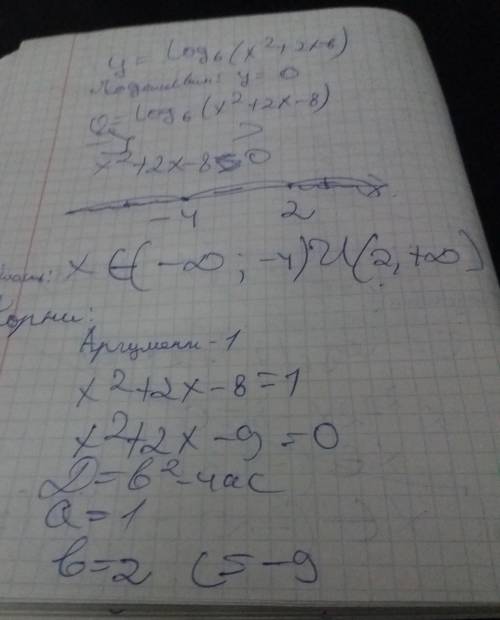 y = log₆(x²+2x-8)
Подставим: y = 0
0 = log₆(x²+2x-8)
x²+2x-8>0
-4 2 x
x ∈(-∞; -4)U(2,+∞)
Корни:
Аргумент - 1
x²+2x-8=1
x²+2x-9=0
D=b²-4ac
a=1
b=2 c=-9